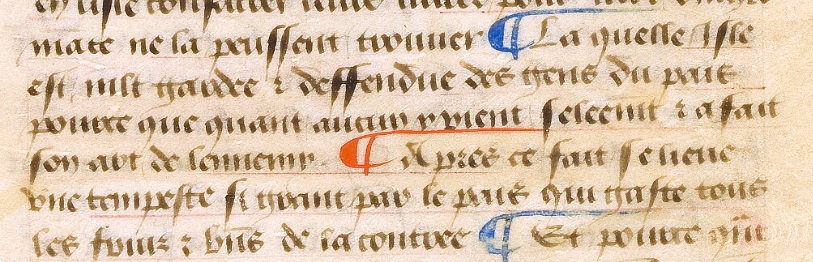 mate ne la peussent trouver ¶ La quelle isle
est mlt gardee ⁊ deffendue des gens du pais
pource que quant aucun y vient secrecmt ⁊ a fait
son art de lennemy. ¶ Apres ce fait se lieve
vne tempeste si grant par le pais qui gaste tous
les fruiz ⁊ biēs de la contree ¶ Et pource qūt